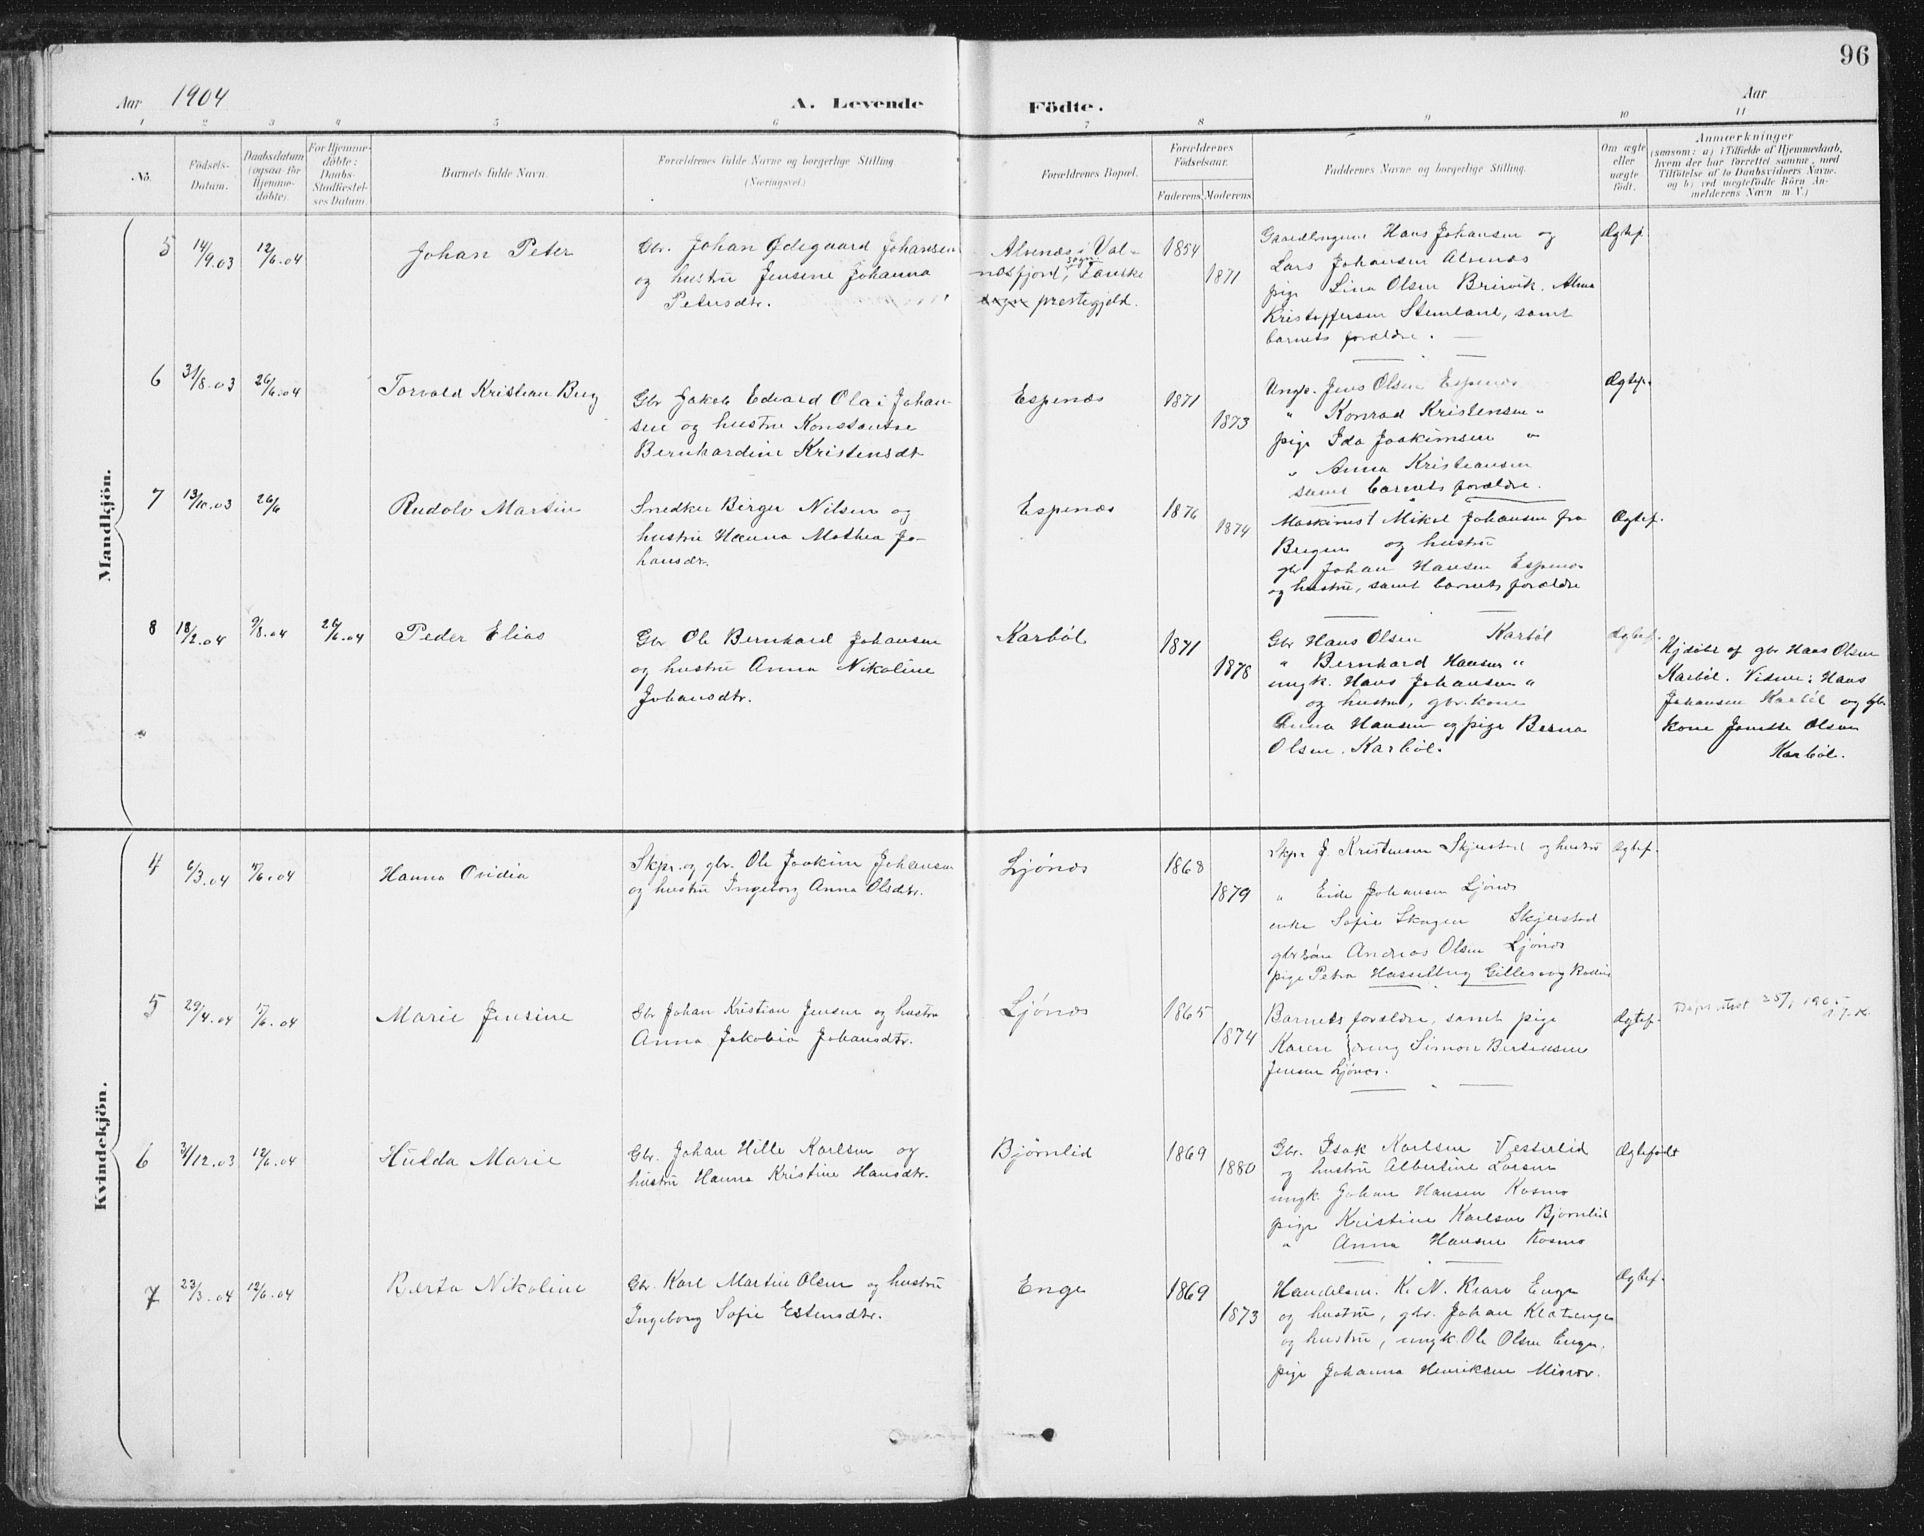 96
Aar 1904
A. Levende
Födte.
Aar
1 2 3 4 5 6 7 8 9 10 11
No.
Födsels-
Datum.
Daabsdatum
(ogsaa for
Hjemme-
döbte).
For Hjemme-
döbte:
Daabs-
Stadfæstel-
ses Datum.
Barnets fulde Navn.
Forældrenes fulde Navne og borgerlige Stilling
(Næringsvei.)
Forældrenes Bopæl.
Forældrenes
Födselsaar.
Faderens. Moderens.
Faddernes Navne og borgerlige Stilling.
Om ægte
eller
uægte
födt.
Anmærkninger
(saasom: a) i Tilfælde af Hjemmedaab,
hvem der har forrettet samme, med
Tilföielse af to Daabsvidners Navne,
og b) ved uægtefödte Börn An-
melderens Navn m. V.)
Mandkjön.
5
14/9.03
12/6.04
Johan Peter
Gbr. Johan Ødegaard Johansen
og hustru Jensine Johanna
Petersdtr.
Alvenæs i Val-
næsfjord, sogn Fauske
prestegjeld.
1854
1871
Hans Johansen og
Lars Johansen Alvenæs
pige Lina Olsen Alma
Kristoffersen samt
barnets forældre.
Ægtef.
6
31/8.03
26/6.04
Torvald Kristian Berg
Gbr Jakob Edvard Olai Johan-
sen og hustru Konstanse
Bernhardine Kristensdt
Espenæs
1871
1873
Ungk. Jens Olsen Espenæs
" Konrad Kristensen "
pige Ida Joakimsen "
" Anna Kristiansen
samt barnets forældre.
Ægtef.
7
13/10.03
26/6
Rudolv Martin
Snedker Birger Nilsen og
hustru Hanna Mathea Jo-
hansdr.
Espenæs
1876
1874
Maskinist Mikal Johansen fra
Bergen og hustru
gbr Johan Hansen Espenæs
og hustru, samt barnets forældre
Ægtef.
8
18/2.04
9/3.04
26/6.04
Peder Elias
Gbr Ole Bernhard Johansen
og hustru Anna Nikoline
Johansdtr.
Karbøl
1871
1878
Gbr Hans Olsen Karbøl
" Bernhard Hansen "
ungk. Hans Johansen "
og hustru, gbr.kone
Anna Hansen og pige Berna
Olsen Karbøl.
Ægtef.
Hjdøbt af gbr Hans Olsen
Karbøl. Vidner: Hans
Johansen Karbøl og gbr
kone Olsen
Karbøl.
Kvindekjön.
4
6/3.04
Hanna Ovidia
Skpr. og gbr. Ole Joakim Johansen
og hustru Ingeborg Anna Olsdtr.
Ljönæs
1868
1879
Skpr J. Kristensen Skjerstad og hustru
" Johansen Ljönes
enke Sofie Skagen Skjerstad
gbr sön Andreas Olsen Ljönes
pige Petra Hasselberg
Ægtef.
5
29/4.04
Marie Jensine
Gbr Johan Kristian Jensen og hustru
Anna Jakobia Johansdtr.
Ljönæs
1865
1874
Barnets forældre, samt pige
Karen dreng Simon Bertinsen
Jensen Ljönes.
Ægtef.
1905
6
31/12.03
12/6.04
Hulda Marie
Gbr. Johan Hille Karlsen og
hustru Hanna Kristine Hansdtr.
Bjørnlid
1869
1880
Gbr. Isak Karlsen Vesterlid
og hustru Albertine Larsen
ungk. Johan Hansen Kosmo
pige Kristine Karlsen Bjørnlid
" Anna Hansen Kosmo
Ægtefödt
7
23/3.04
12/6.04
Berta Nikoline
Gbr. Karl Martin Olsen og hustru
Ingeborg Sofie Estensdtr.
Enge
1869
1873
Handelsm. K. N. Enge
og hustru, gbr. Johan
og hustru, ungk. Ole Olsen Enge,
pige Johanna Henriksen Misvær.
Ægtef.